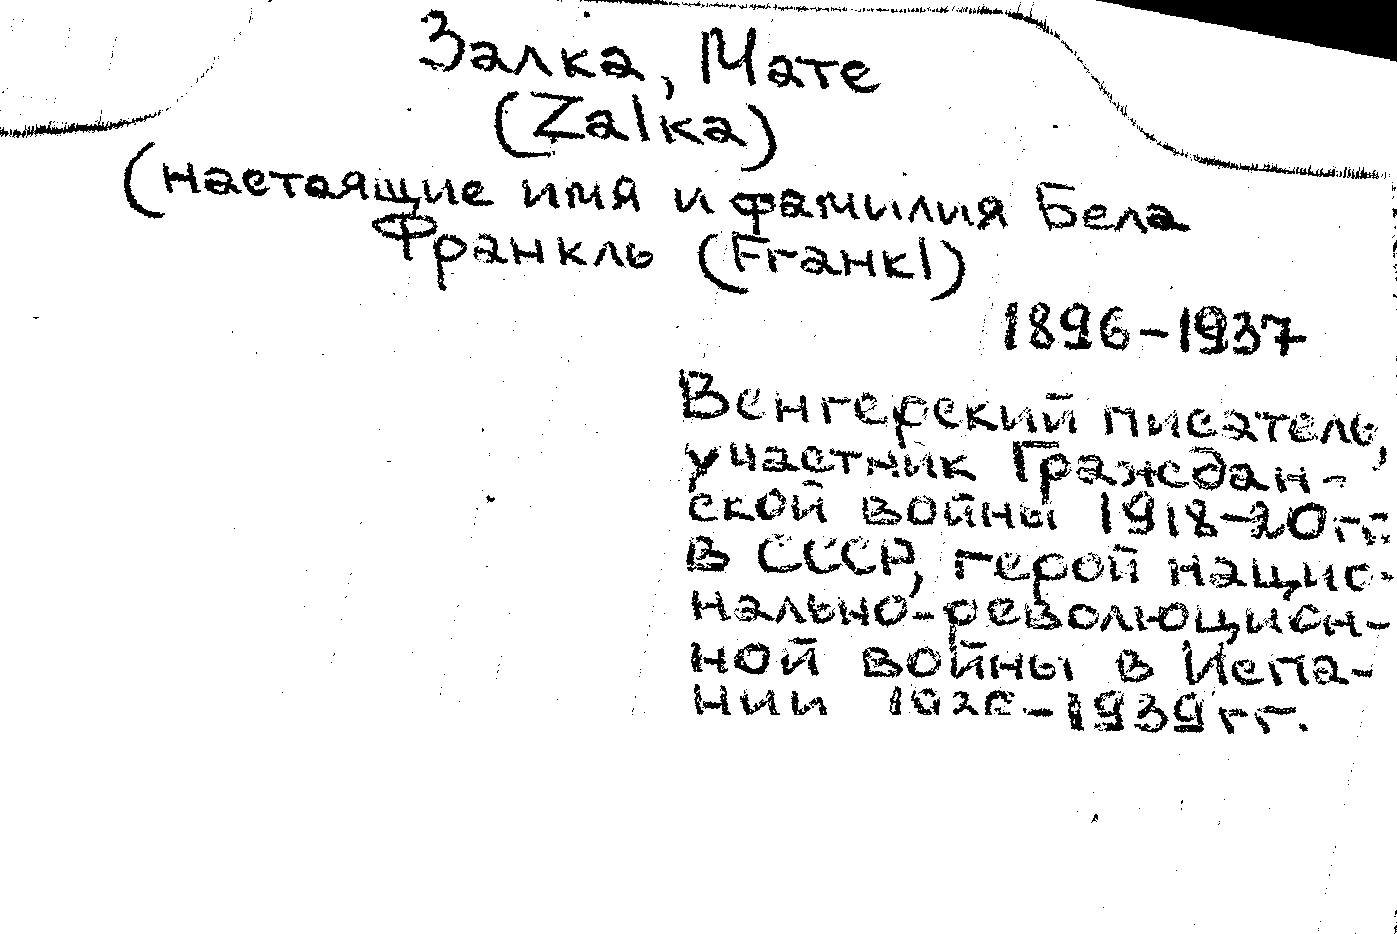 Залка, Мате
(Zalka)
(настоящие имя и фамилия Бела
Франкль (Frанкl)
1896-1937
Венгерский писатель,
участник Граждан-
ской войны 1918-20гг.
в СССР, герой нацио-
нально-революцион-
ной войны в Испа-
нии 1936-1939гг.